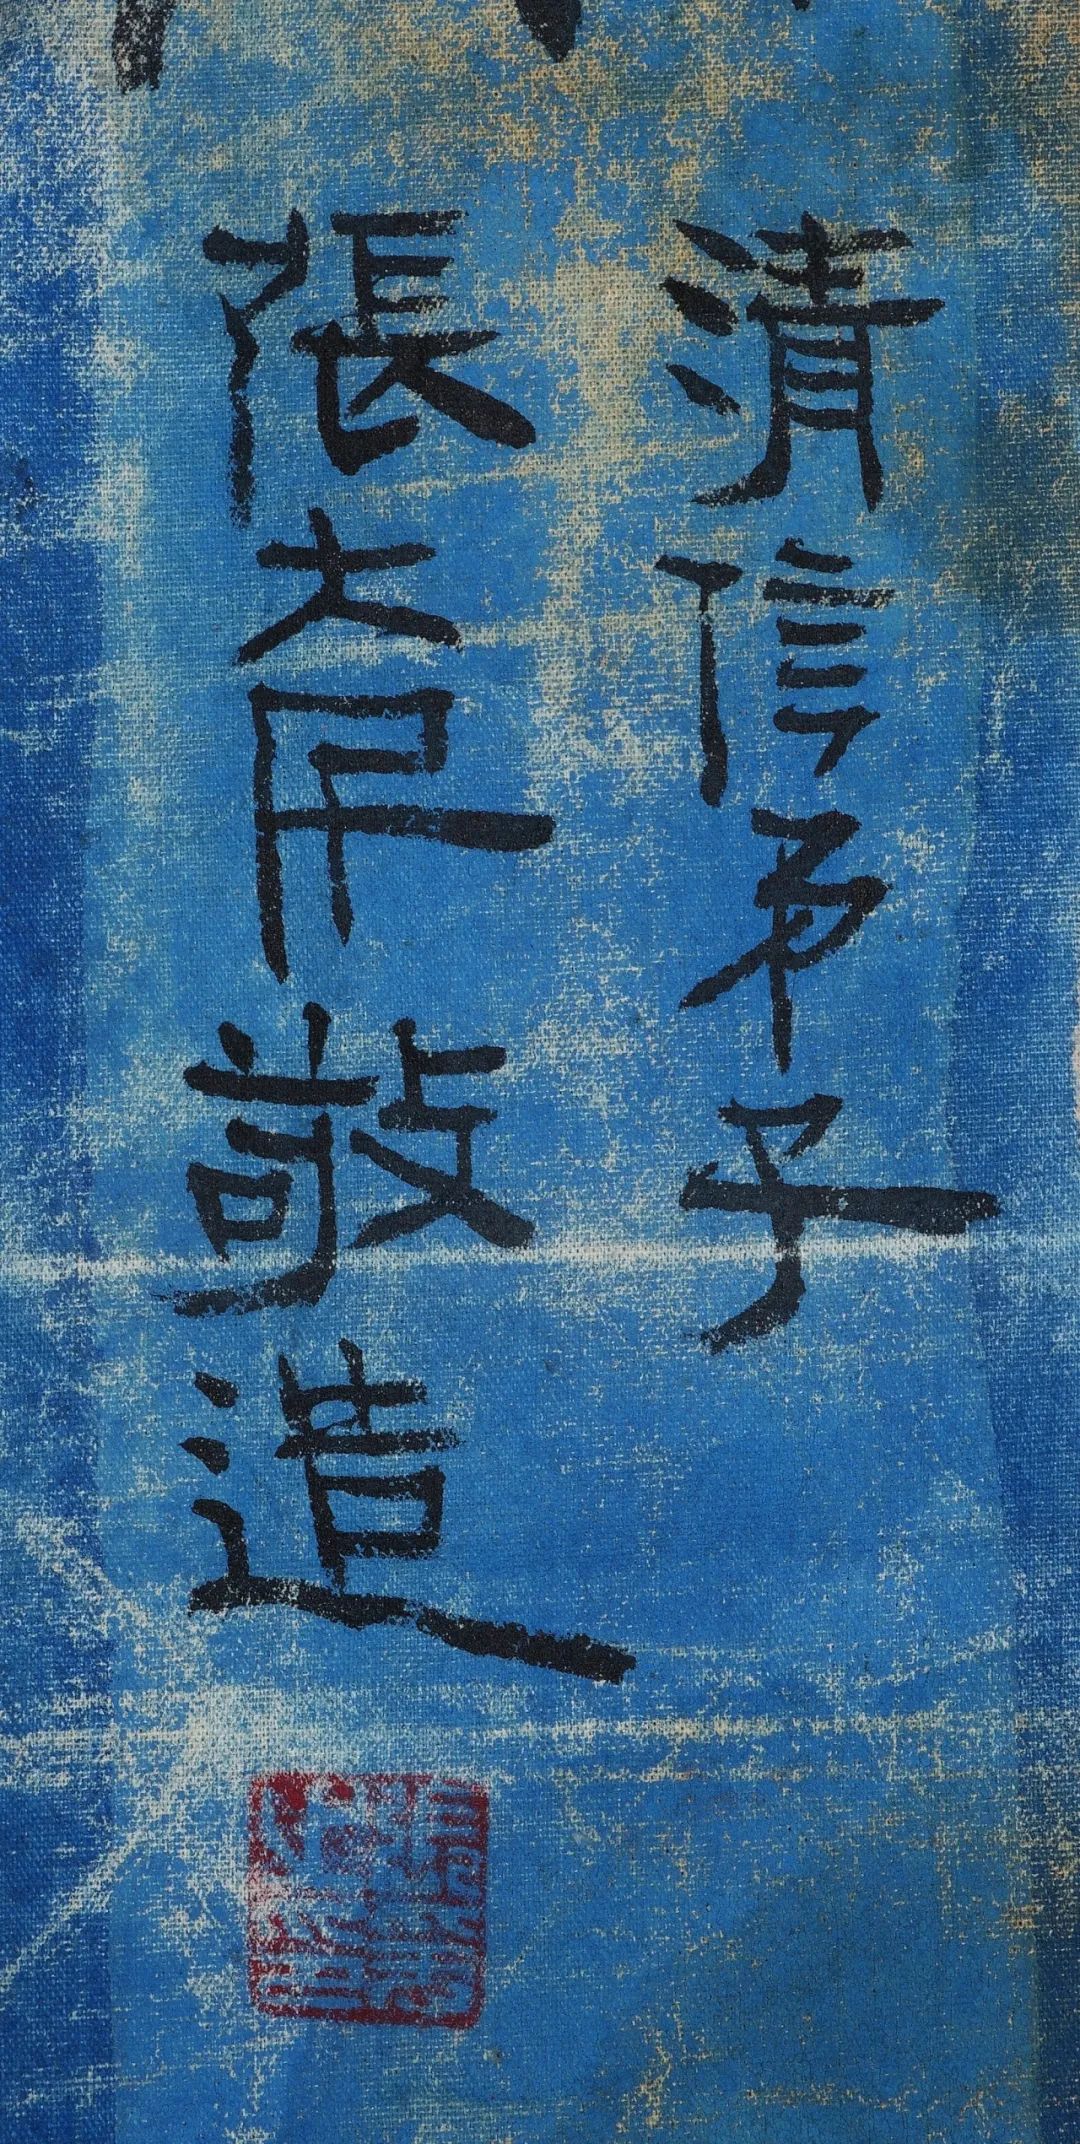 清信弟子
張大敬造